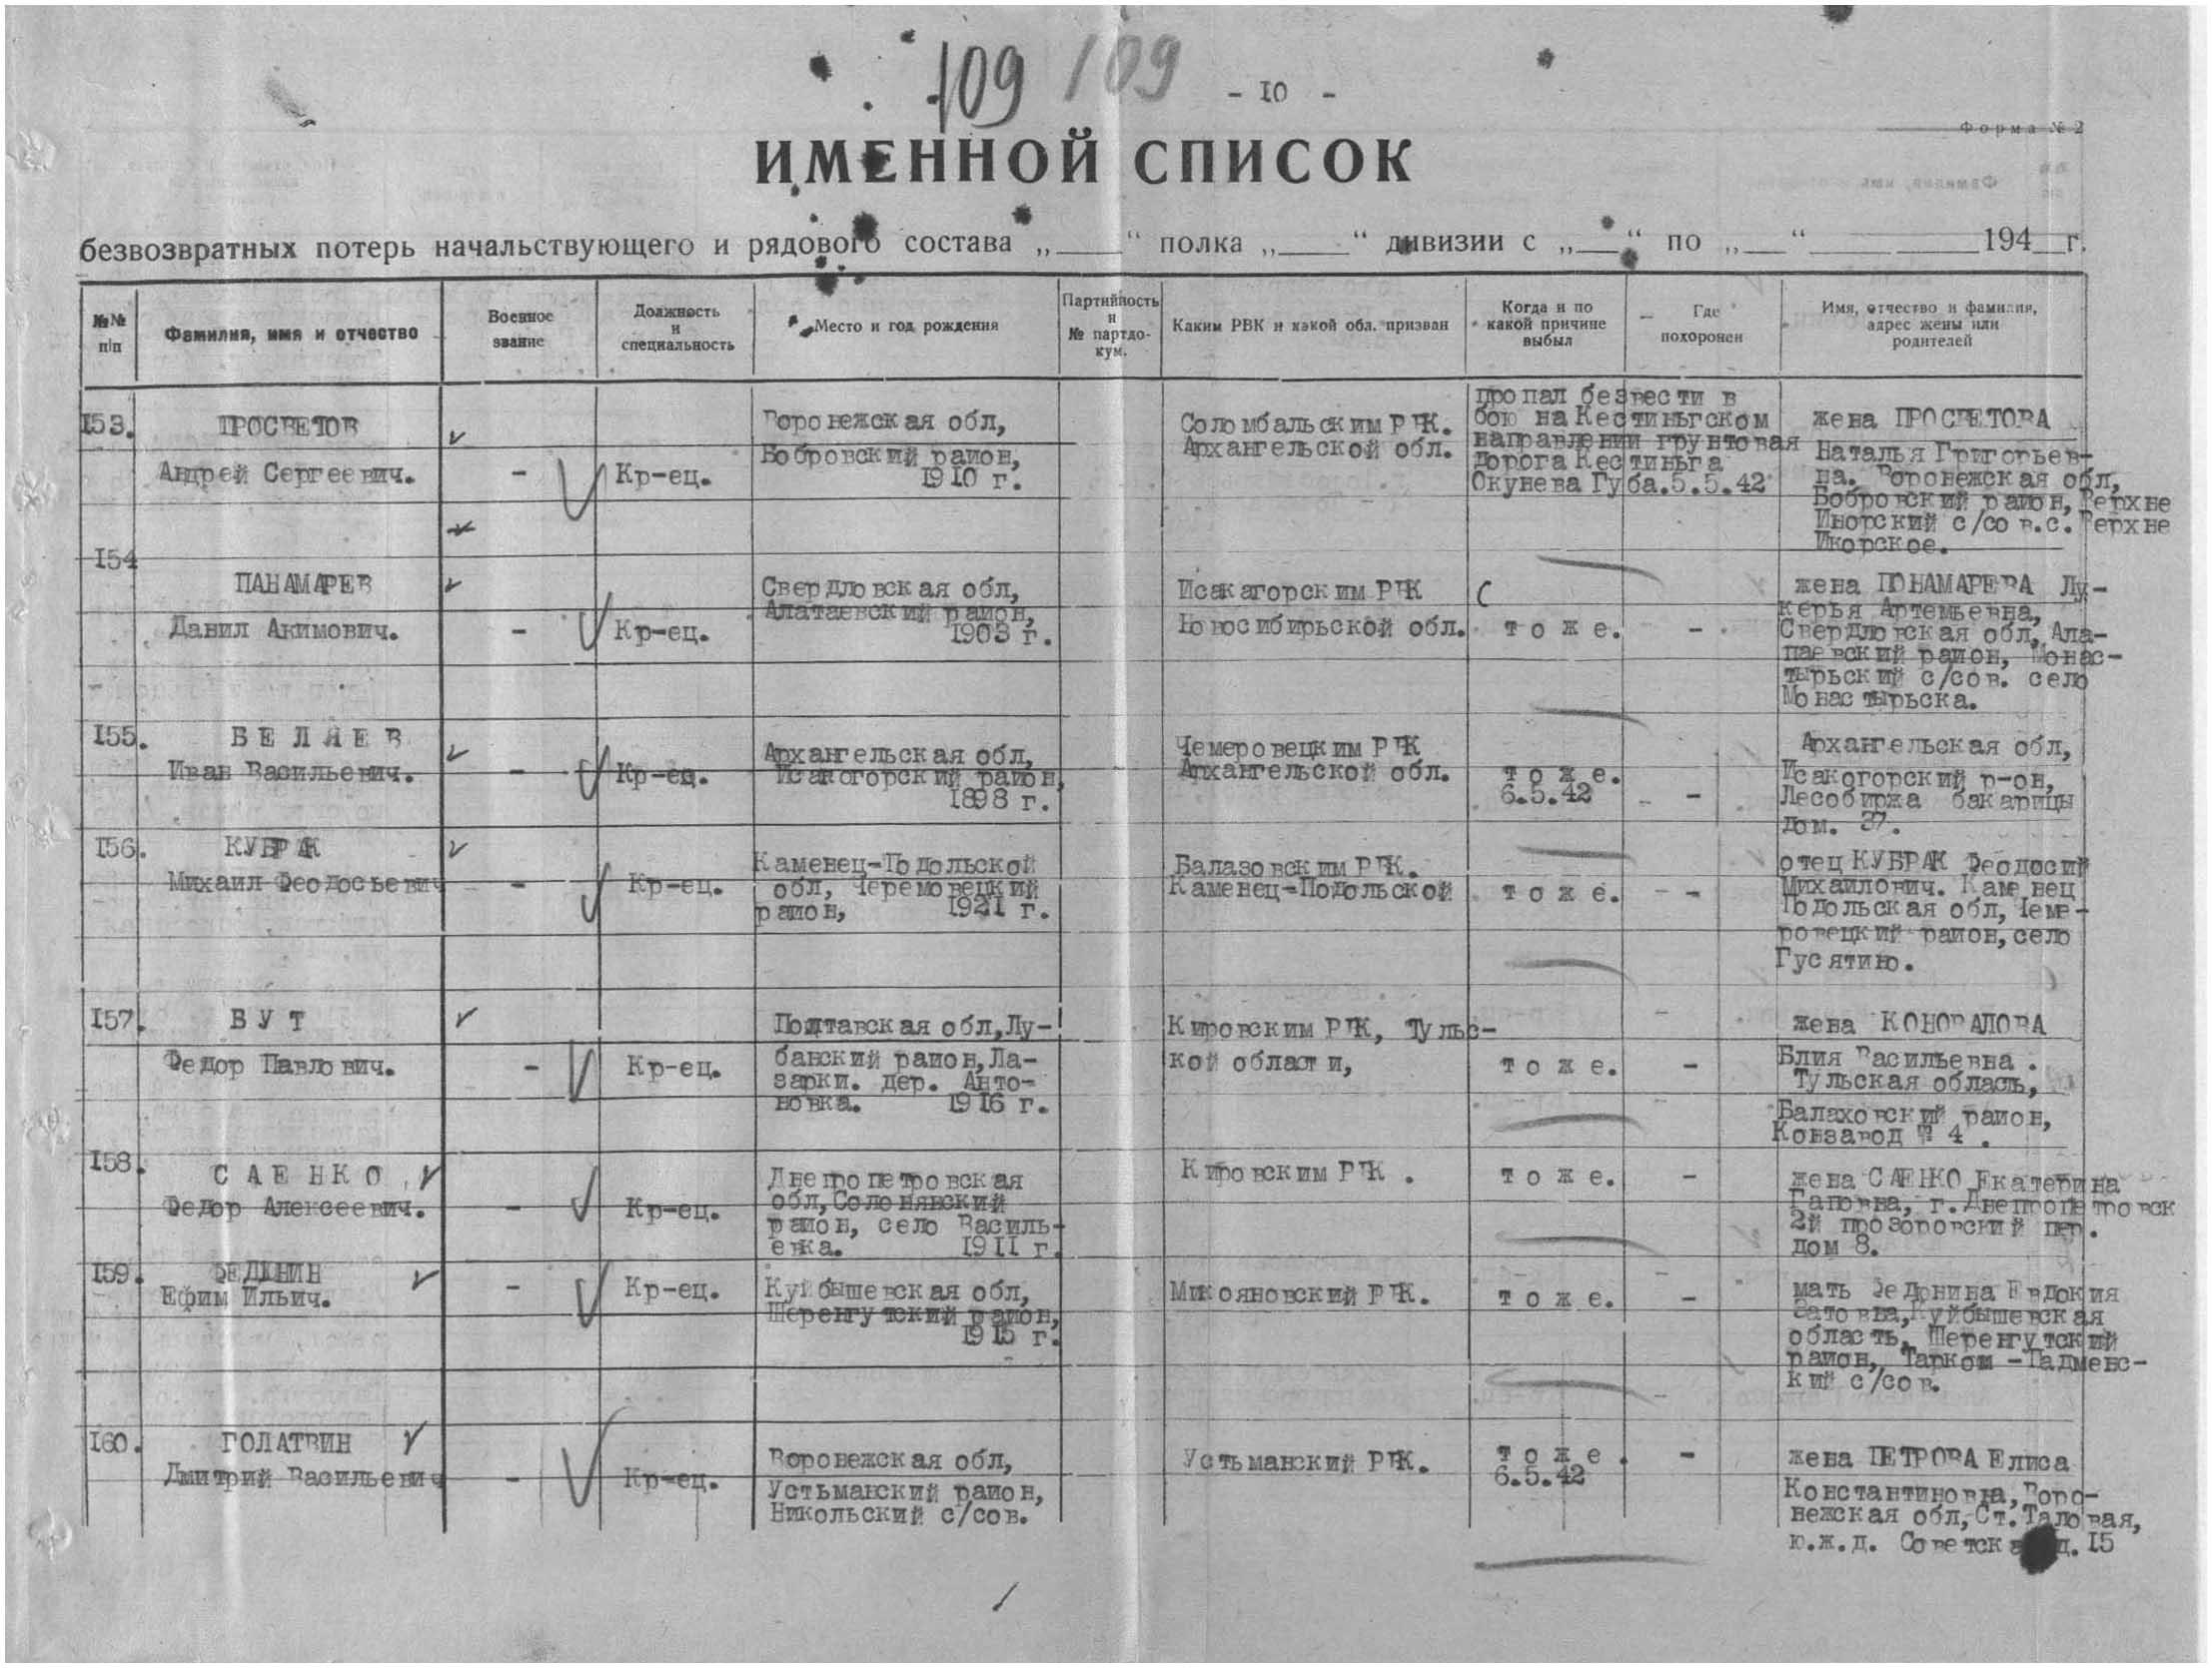 109 109
- 10 -
Форма № 2
ИМЕННОЙ СПИСОК
безвозвратных потерь начальствующего и рядового состава „____“ полка „____“ дивизии с „___“ по „___“ ________ 194__г.
№№ п/п
Фамилия, имя и отчество
Военное звание
Должность и специальность
Место и год рождения
Партийность и № партдокум.
Каким РВК и какой обл. призван
Когда и по какой причине выбыл
Где похоронен
Имя, отчество и фамилия, адрес жены или родителей
153.
ПРОСВЕТОВ
Андрей Сергеевич.
-
Кр-ец.
Воронежская обл,
Бобровский район,
1910 г.
Соломбальским РВК.
Архангельской обл.
пропал безвести в
бою на Кестиньгском
направлении грунтовая
дорога Кестиньга
Окунева Губа.5.5.42
жена ПРОСВЕТОВА
Наталья Григорьев-
на. Воронежская обл,
Бобровский район, Верхне
Инорский с/сов.с. Верхне
Икорское.
154
ПАНАМАРЕВ
Данил Акимович.
-
Кр-ец.
Свердловская обл,
Алатаевский район,
1903 г.
Исакагорским РВК
Новосибирьской обл.
тоже.
-
жена ПОНАМАРЕВА Лу-
керья Артемьевна,
Свердловская обл, Ала-
паевский район, Монас-
тырьский с/сов. село
Монастырьска.
155.
БЕЛЯЕВ
Иван Васильевич.
-
Кр-ец.
Архангельская обл,
Исакогорский район,
1898 г.
Чемеровецким РВК
Архангельской обл.
тоже.
6.5.42
-
Архангельская обл,
Исакогорский р-он,
Лесобиржа бакарицы
дом. 37.
156.
КУБРАК
Михаил Феодосьевич
-
Кр-ец.
Каменец-Подольской
обл, Черемовецкий
район, 1921 г.
Балазовским РВК.
Каменец-Подольской
тоже.
-
отец КУБРАК Феодосий
Михаилович. Каменец
Подольская обл, Чеме-
ровецкий район, село
Гусятино.
157.
БУТ
Федор Павлович.
-
Кр-ец.
Полтавская обл, Лу-
банский район, Ла-
зарки. дер. Анто-
новка. 1916 г.
Кировским РВК, Тульс-
кой области,
тоже.
-
жена КОНОВАЛОВА
Блия Васильевна.
Тульская область,
Балаховский район,
Конзавод № 4.
158.
САЕНКО
Федор Алексеевич.
-
Кр-ец.
Днепропетровская
обл, Солонявский
район, село Василь-
евка. 1911 г.
Кировским РВК.
тоже.
-
жена САЕНКО Екатерина
Гаповна, г. Днепропетровск
2й прозоровский пер.
дом 8.
159.
ФЕДЮНИН
Ефим Ильич.
-
Кр-ец.
Куйбышевская обл,
Шеренгутский район,
1915 г.
Микояновский РВК.
тоже.
-
мать Федюнина Евдокия
Куйбышевская
область, Шеренгутский
район,
кий с/сов.
160.
ГОЛАТВИН
Дмитрий Васильевич
-
Кр-ец.
Воронежская обл,
Устьманский район,
Никольский с/сов.
Устьманский РВК.
тоже.
6.5.42
-
жена ПЕТРОВА Елиса
Константиновна, Воро-
нежская обл, Ст. Таловая,
ю.ж.д. Советска д. 15